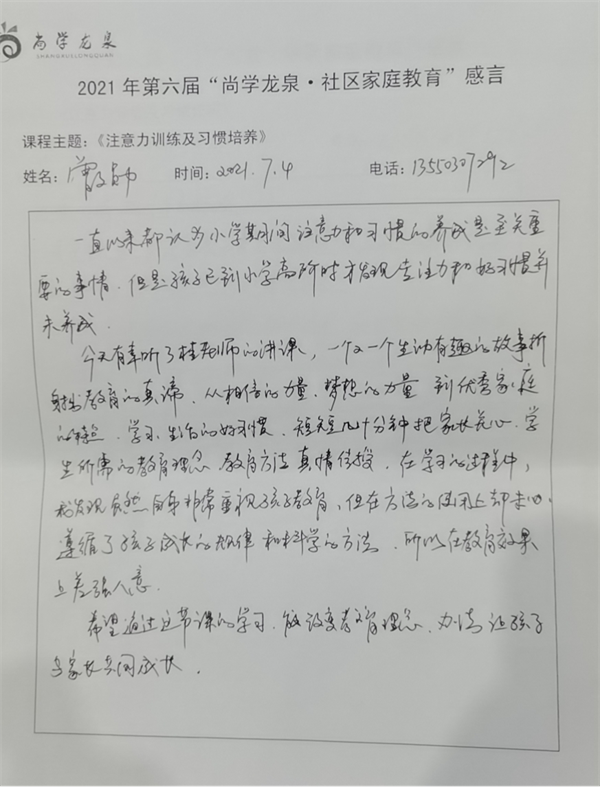 尚学龙泉
SHANGXUELONGQUAN
2021年第六届“尚学龙泉·社区家庭教育”感言
课程主题:《注意力训练及习惯培养》
姓名: 时间:2021.7.4 电话:13550307292
一直以来都认为小学期间注意力和习惯的养成是至关重
要的事情,但是孩子已到小学高阶时才发现专注力和好习惯并
未养成.
今天有幸听了桂老师的讲课,一个又一个生动有趣的故事折
射出教育的真谛,从相信的力量、梦想的力量到优秀家庭
的 学习、生活的好习惯,短短几十分钟把家长关心、学
生所需的教育理念教育方法真情传授,在学习的过程中,
我发现虽然自身非常重视孩子教育,但在方法的运用上却未必
遵循了孩子成长的规律和科学的方法,所以在教育效果
上差强人意.
希望通过这节课的学习,能改变教育理念、办法让孩子
与家长共同成长.